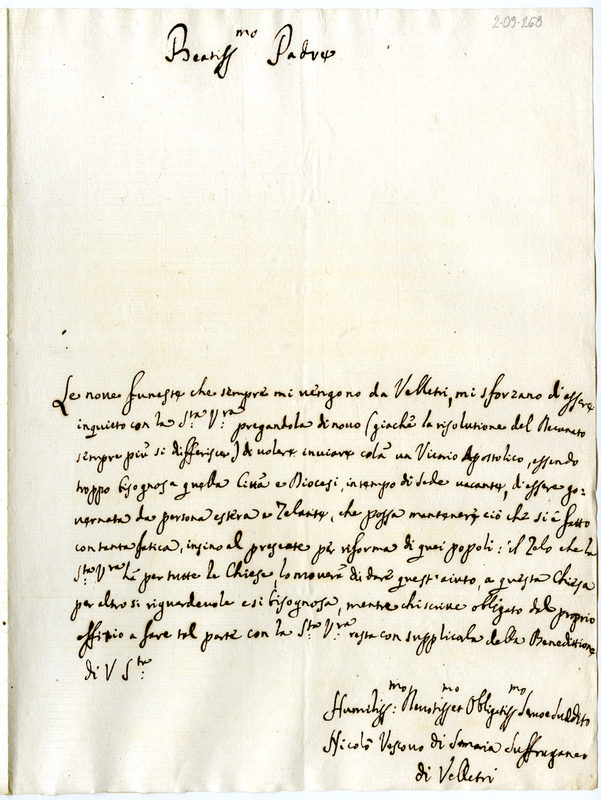 2-09-268
Beatiss.mo Padre
Le nove funeste che sempre mi vengono da Velletri, mi sforzano di essere
inquieto con la S.ta V.ra pregandola di novo (giache la risolutione del
sempre piu si differisce) di volere inviare colà un Vicario Apostolico, essendo
troppo bisognosa quella Città e Diocesi, in tempo di Sede vacante, d'essere go=
vernata da persona estera e Zelante, che possa mantenere ciò che si è fatto
con tanta fatica, insino al presente per riforma di quei popoli: il Zelo che la
S.ta V.ra hà per tutte le Chiese, lo moverà di dare quest'aiuto, a questa Chiesa
per altro si riguardevole e si bisognosa, mentre chi scrive obligato del proprio
offitio a fare tal parte con la S.ta V.ra resta con supplicarla della Benedittione
di V S.tra
Humiliss.mo Devotiss.mo et Obligatiss.mo Servo e Suddito
Nicolò Vescovo di Suffraganeo
di Velletri